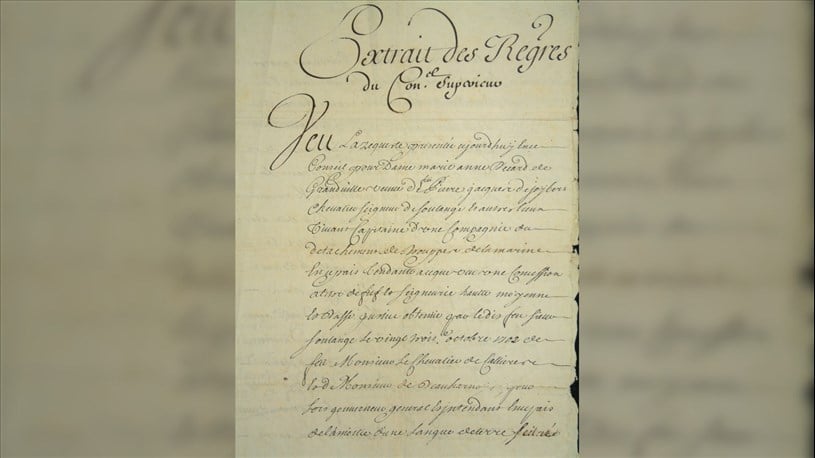 Extrait des Regres
du Con.el Superieur
Veu La requeste presentée aujourdhuy à ce
Conseil pour Dame marie anne Becard de
Grandville veuve de Pierre jacques de joybert
Chevalier seigneur de soulange & autres lieux
vivant Capitaine d'une Compagnie du
detachement de trouppes de la marine
En ce pais tendante a ce que une Concession
a titre de fief & seigneurie haute moyenne
& basse justice obtenue par le dit feu sieur
soulange le vingt trois.e octobre 1702 de
feu Monsieur Le Chevalier de Calliere
& de Monsieur de Beauharnois pour
lors gouverneur general & jntendant en ce pais
de la moitié d'une Langue de terre scituée